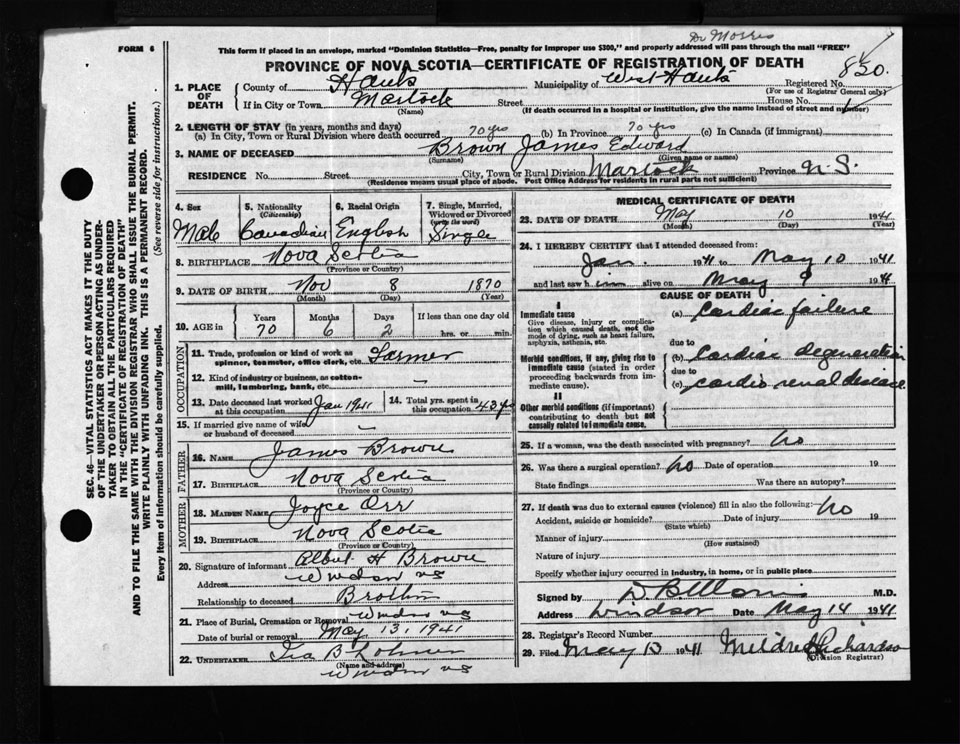 Dr Morris
FORM 6
This form if placed in an envelope, marked "Dominion Statistics—Free, penalty for improper use $300," and properly addressed will pass through the mail "FREE"
PROVINCE OF NOVA SCOTIA—CERTIFICATE OF REGISTRATION OF DEATH
1. PLACE OF DEATH
County of Hants Municipality of West Hants Registered No. 820.
(For use of Registrar General only)
If in City or Town Martock Street House No.
(Name) (If death occurred in a hospital or institution, give the name instead of street and number)
2. LENGTH OF STAY (in years, months and days)
(a) In City, Town or Rural Division where death occurred 70 yrs (b) In Province 70 yrs (c) In Canada (if immigrant)
3. NAME OF DECEASED Brown James Edward
(Surname) (Given name or names)
RESIDENCE No. Street City, Town or Rural Division Martock Province N.S.
(Residence means usual place of abode. Post Office Address for residents in rural parts not sufficient)
4. Sex 5. Nationality (Citizenship) 6. Racial Origin 7. Single, Married, Widowed or Divorced (write the word)
Male Canadian English Single
8. BIRTHPLACE Nova Scotia
(Province or Country)
9. DATE OF BIRTH Nov 8 1870
(Month) (Day) (Year)
10. AGE in Years Months Days If less than one day old
70 6 2 hrs. or min.
OCCUPATION
11. Trade, profession or kind of work as spinner, teamster, office clerk, etc. Farmer
12. Kind of industry or business, as cotton-mill, lumbering, bank, etc. —
13. Date deceased last worked at this occupation Jan 1941 14. Total yrs. spent in this occupation
15. If married give name of wife or husband of deceased —
FATHER
16. NAME James Brown
17. BIRTHPLACE Nova Scotia
(Province or Country)
MOTHER
18. MAIDEN NAME Joyce Orr
19. BIRTHPLACE Nova Scotia
(Province or Country)
20. Signature of informant Albert H Brown
Address Windsor NS
Relationship to deceased Brother
21. Place of Burial, Cremation or Removal Windsor NS
Date of burial or removal May 13, 1941
22. UNDERTAKER Ira B
(Name and address)
Windsor NS
MEDICAL CERTIFICATE OF DEATH
23. DATE OF DEATH May 10 1941
(Month) (Day) (Year)
24. I HEREBY CERTIFY that I attended deceased from:
Jan. 1941 to May 10 1941
and last saw him alive on May 9 1941
CAUSE OF DEATH
I
Immediate cause
Give disease, injury or complication which caused death, not the mode of dying, such as heart failure, asphyxia, asthenia, etc.
(a) Cardiac failure
due to
Morbid conditions, if any, giving rise to immediate cause (stated in order proceeding backwards from immediate cause)
(b) Cardiac degeneration
due to
(c) Cardio renal disease
II
Other morbid conditions (if important) contributing to death but not causally related to immediate cause.
25. If a woman, was the death associated with pregnancy? no
26. Was there a surgical operation? no Date of operation 19
State findings Was there an autopsy?
27. If death was due to external causes (violence) fill in also the following: no
Accident, suicide or homicide? Date of injury 19
(State which)
Manner of injury
(How sustained)
Nature of injury
Specify whether injury occurred in industry, in home, or in public place
Signed by M.D.
Address Windsor Date May 14 1941
28. Registrar's Record Number
29. Filed May 1941 Mildred Richardson
(Division Registrar)
SEC. 46—VITAL STATISTICS ACT MAKES IT THE DUTY
OF THE UNDERTAKER OR PERSON ACTING AS UNDER-
TAKER TO OBTAIN ALL THE PARTICULARS REQUIRED
IN THE "CERTIFICATE OF REGISTRATION OF DEATH"
AND TO FILE THE SAME WITH THE DIVISION REGISTRAR WHO SHALL ISSUE THE BURIAL PERMIT.
WRITE PLAINLY WITH UNFADING INK. THIS IS A PERMANENT RECORD.
Every item of information should be carefully supplied. (See reverse side for instructions.)